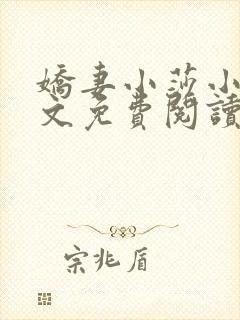 嬌妻小莎小
文免費閱讀
宗兆盾